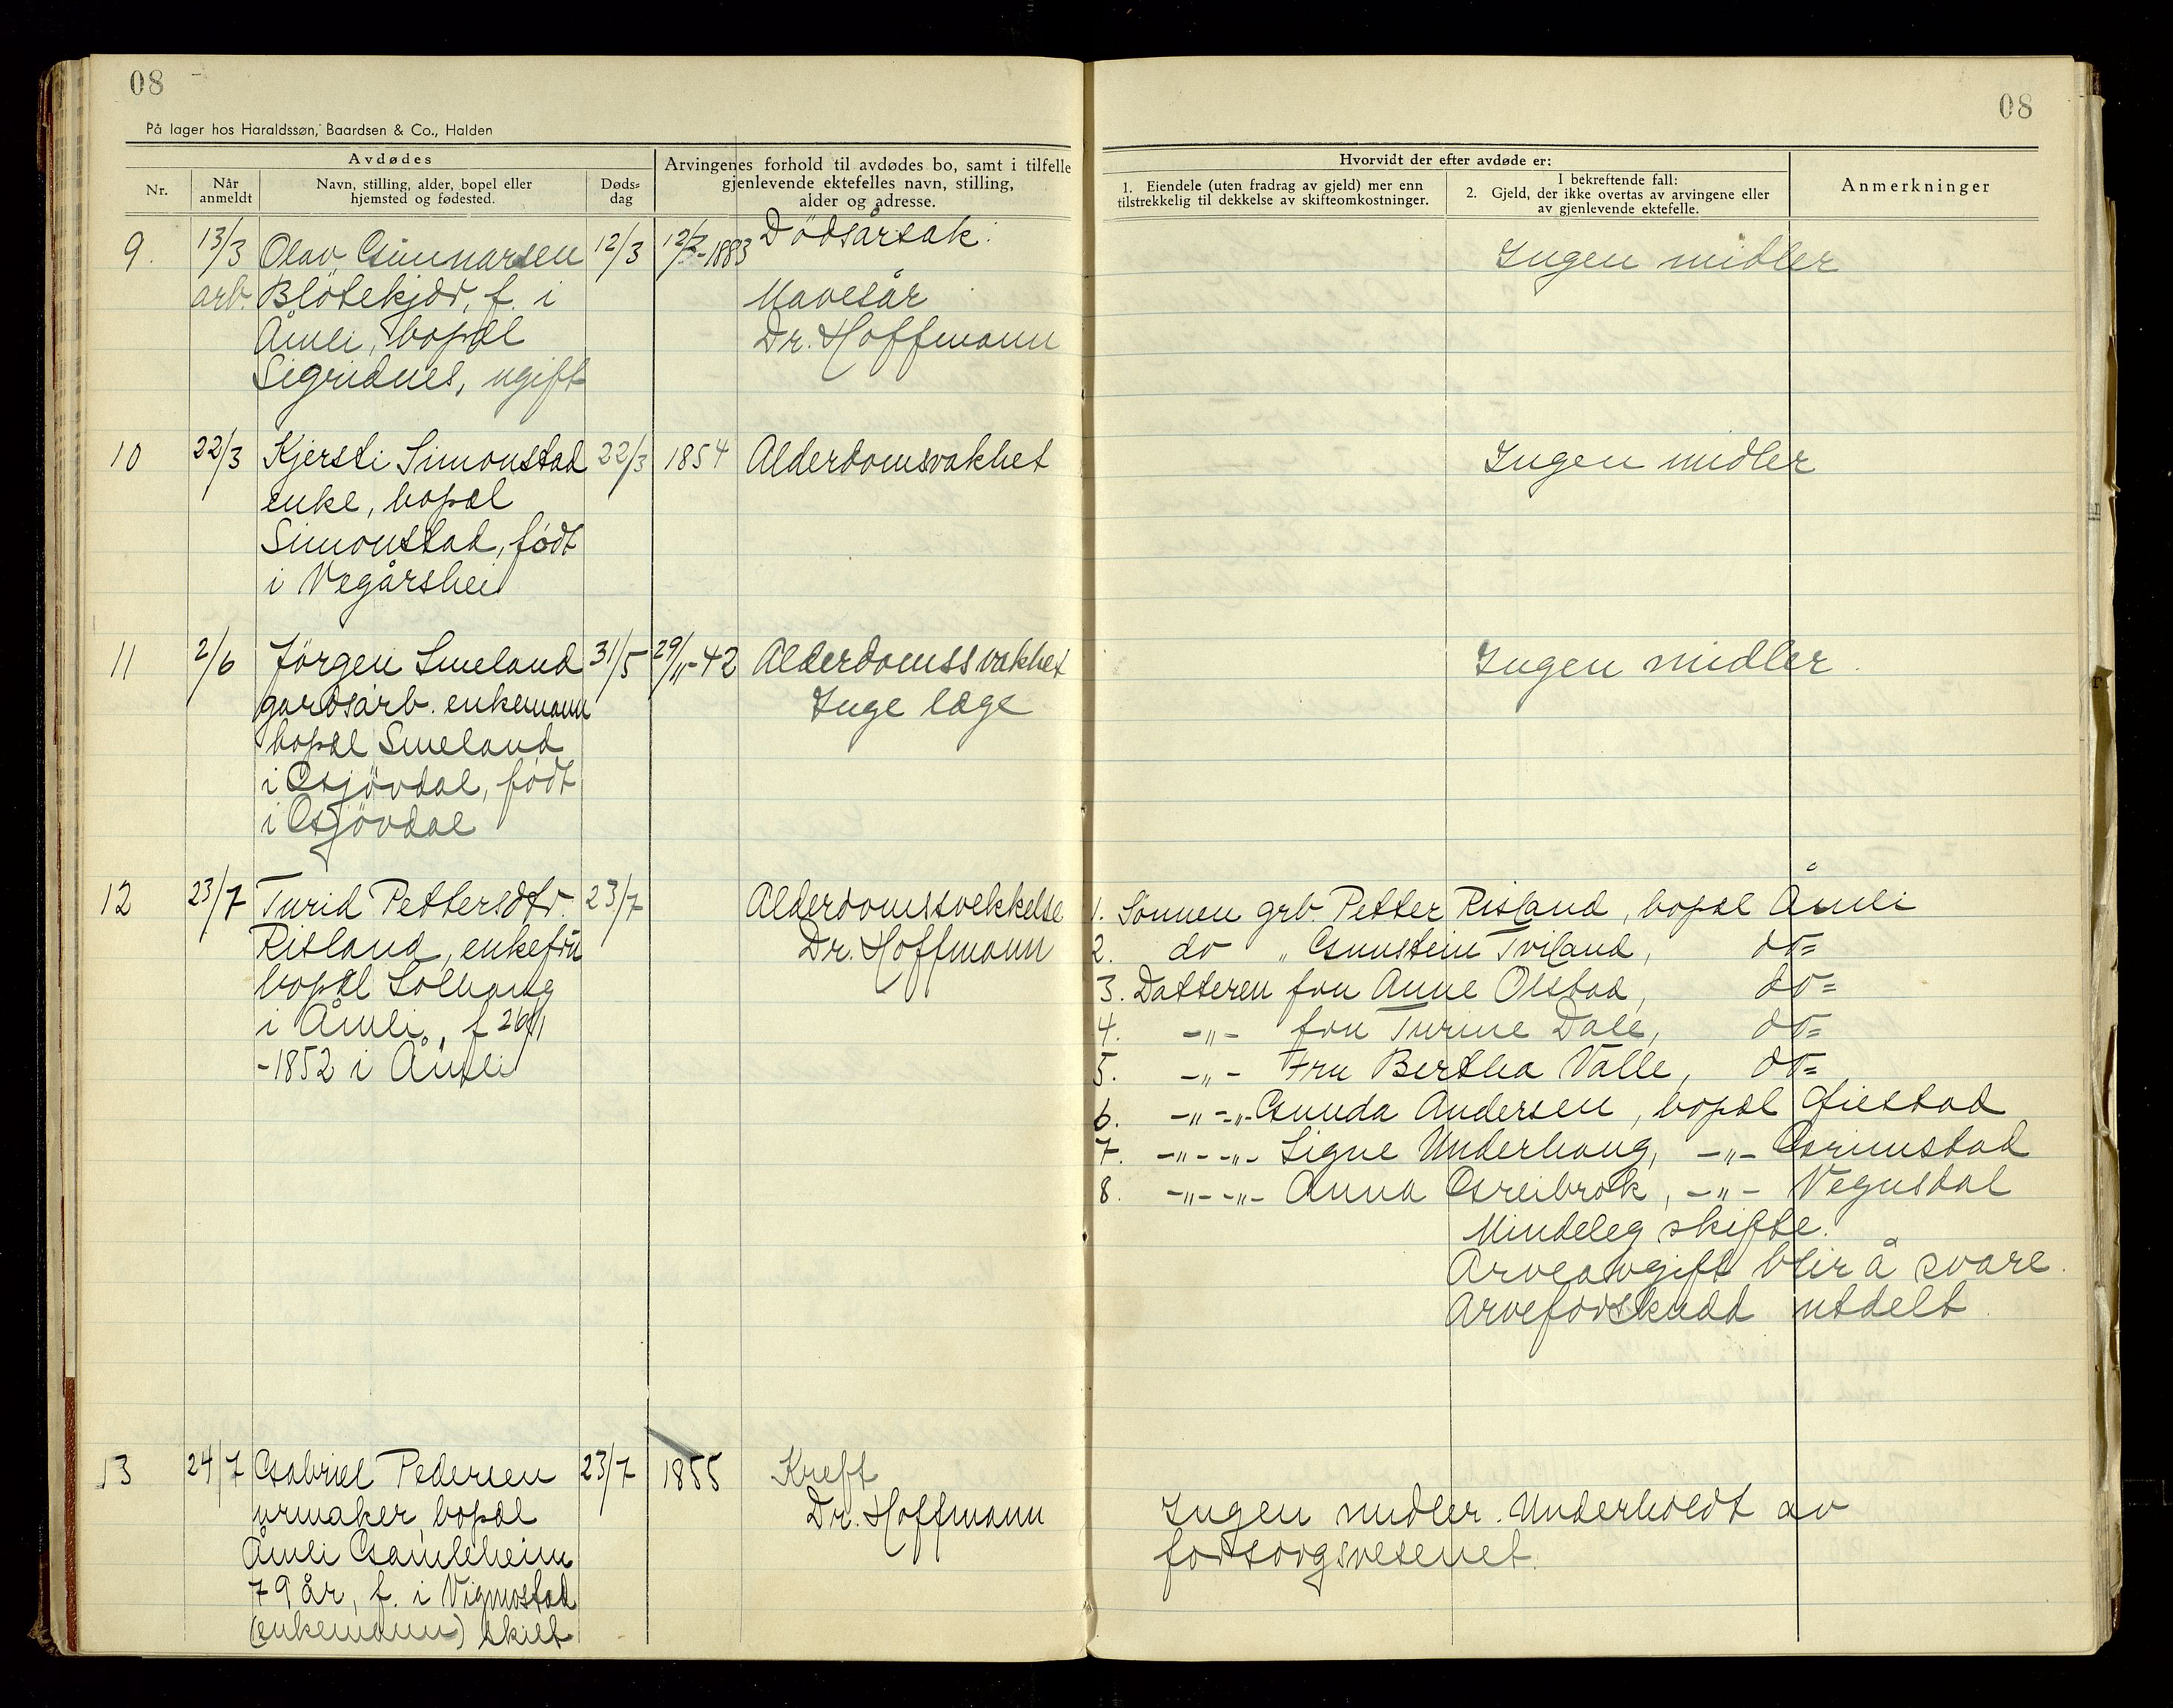 08
08
På lager hos Haraldssøn, Baardsen & Co., Halden
Avdødes
Nr.
Når anmeldt
Navn, stilling, alder, bopel eller hjemsted og fødested.
Døds-dag
Arvingenes forhold til avdødes bo, samt i tilfelle
gjenlevende ektefelles navn, stilling,
alder og adresse.
Hvorvidt der efter avdøde er:
1. Eiendele (uten fradrag av gjeld) mer enn
tilstrekkelig til dekkelse av skifteomkostninger.
I bekreftende fall:
2. Gjeld, der ikke overtas av arvingene eller
av gjenlevende ektefelle.
Anmerkninger
9. 13/3 Olav Gunnarsen 12/3 -1883 Dödsårsak. Ingen midler
arb. Blötekjær, f. i Mavesår
Åmli, bopæl Dr. Hoffmann
Sigridnes, ugift
10 22/3 Kjersti Simonstad 22/3 1854 Alderdomsvakhet Ingen midler
enke, bopæl
Simonstad, født
i Vegårshei
11 2/6 Jörgen Smeland 31/5 29/11-42 Alderdomssvakhet Ingen midler.
gardsarb. enkemann Inge læge
bopæl Smeland
i Gjövdal, født
i Gjövdal
12 23/7 Turid Pettersdtr. 23/7 Alderdomssvekkelse
Risland, enkefru Dr. Hoffmann
bopæl Solhaug
i Åmli, f 26/1
-1852 i Åmli
1. Sönnen grb. Petter Risland, bopæl Åmli
2. do " Gunstein Tviland, do=
3. Datteren fru Anne Olstad, do=
4. -"- fru Turine Dale, do=
5. -"- Fru Bertha Valle, do=
6. -"-"- Gunda Andersen, bopæl Øiestad
7. -"- -"- Signe Underhaug, -"- Grimstad
8. -"- -"- Anna Greibrok, -"- Vegusdal
Mindeleg skifte.
Arveavgift blir å svare.
Arveforskudd utdelt.
13 24/7 Gabriel Pedersen 23/7 1855 Kreft
urmaker, bopæl Dr. Hoffmann Ingen midler. Underholdt av
Åmli Gamleheim forsorgsvesenet.
79 år, f. i Vigmostad
(enkemann) skilt